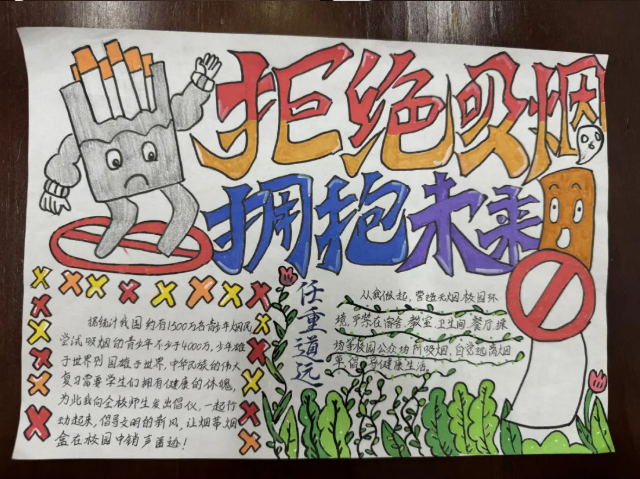 拒绝吸烟
拥抱未来
任重道远
据统计我国约有1500万名青少年烟民
尝试吸烟的青少年不少于4000万,少年雄
于世界则国雄于世界,中华民族的伟大
复习需要学生们拥有健康的体魄,
为此我向全校师生发出倡仪,一起行
动起来,倡导文明的新风,让烟蒂烟
盒在校园中销声匿迹!
从我做起,营造无烟校园环
境,严禁在宿舍、教室、卫生间、餐厅、操
场等校园公众场所吸烟,自觉远离烟
草,倡导健康生活。